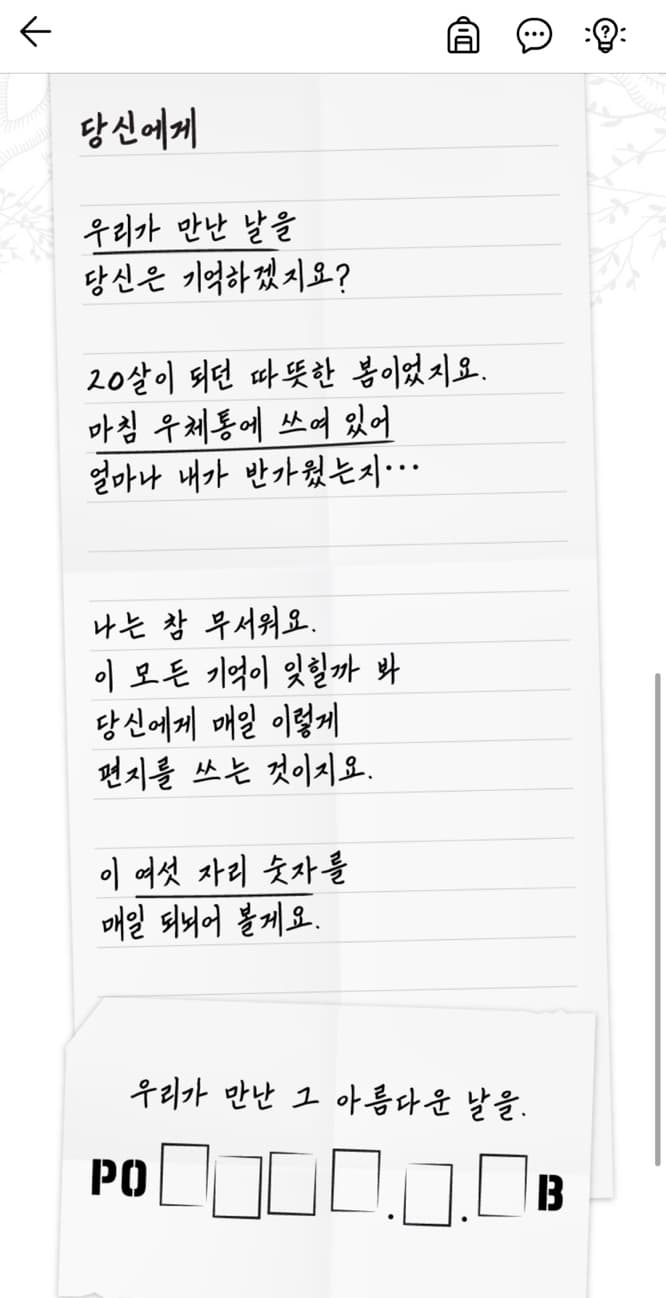 당신에게
우리가 만난 날을
당신은 기억하겠지요?
20살이 되던 따뜻한 봄이었지요.
마침 우체통에 쓰여 있어
얼마나 내가 반가웠는지...
나는 참 무서워요.
이 모든 기억이 잊힐까 봐
당신에게 매일 이렇게
편지를 쓰는 것이지요.
이 여섯 자리 숫자를
매일 되뇌어 볼게요.
우리가 만난 그 아름다운 날을.
PO□□□□.□.□B